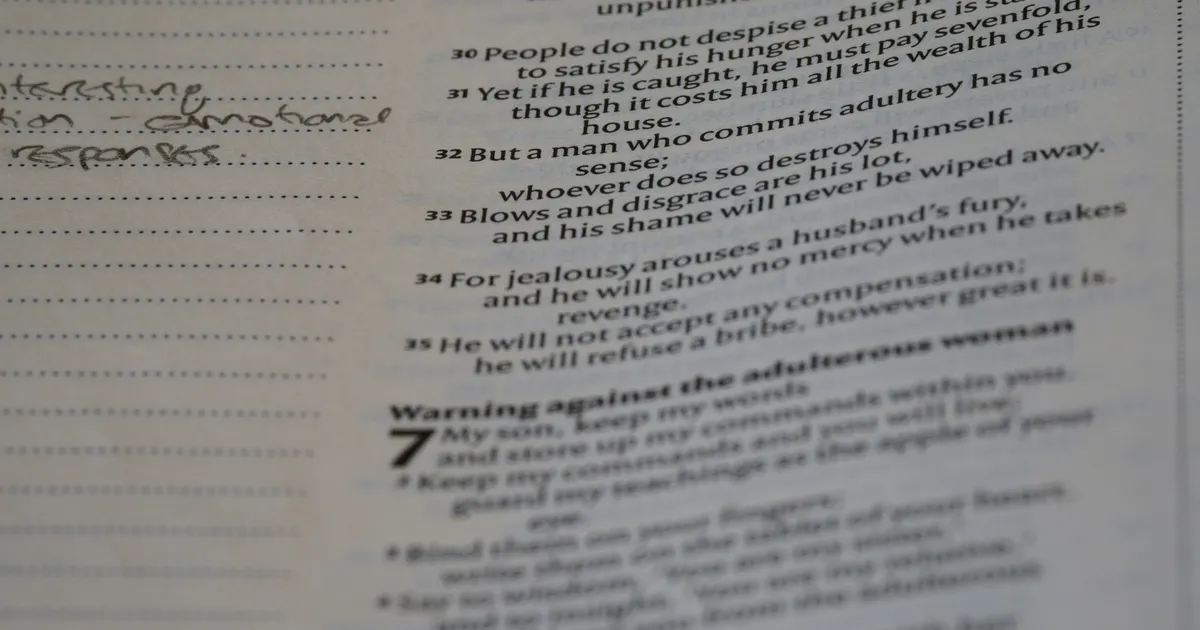 nteresting
tion - emotional
responses.
unpunis
30 People do not despise a thief
to satisfy his hunger when he is
31 Yet if he is caught, he must pay sevenfold,
though it costs him all the wealth of his
house.
32 But a man who commits adultery has no
sense;
whoever does so destroys himself.
33 Blows and disgrace are his lot,
and his shame will never be wiped away.
34 For jealousy arouses a husband's fury,
and he will show no mercy when he takes
revenge.
35 He will not accept any compensation;
he will refuse a bribe, however great it is.
Warning against the adulterous woman
7 My son, keep my words
and store up my commands within you.
Keep my commands and you will live;
guard my teachings as the apple of your
eye.
Bind them on your fingers;
write them on the tablet of your heart.